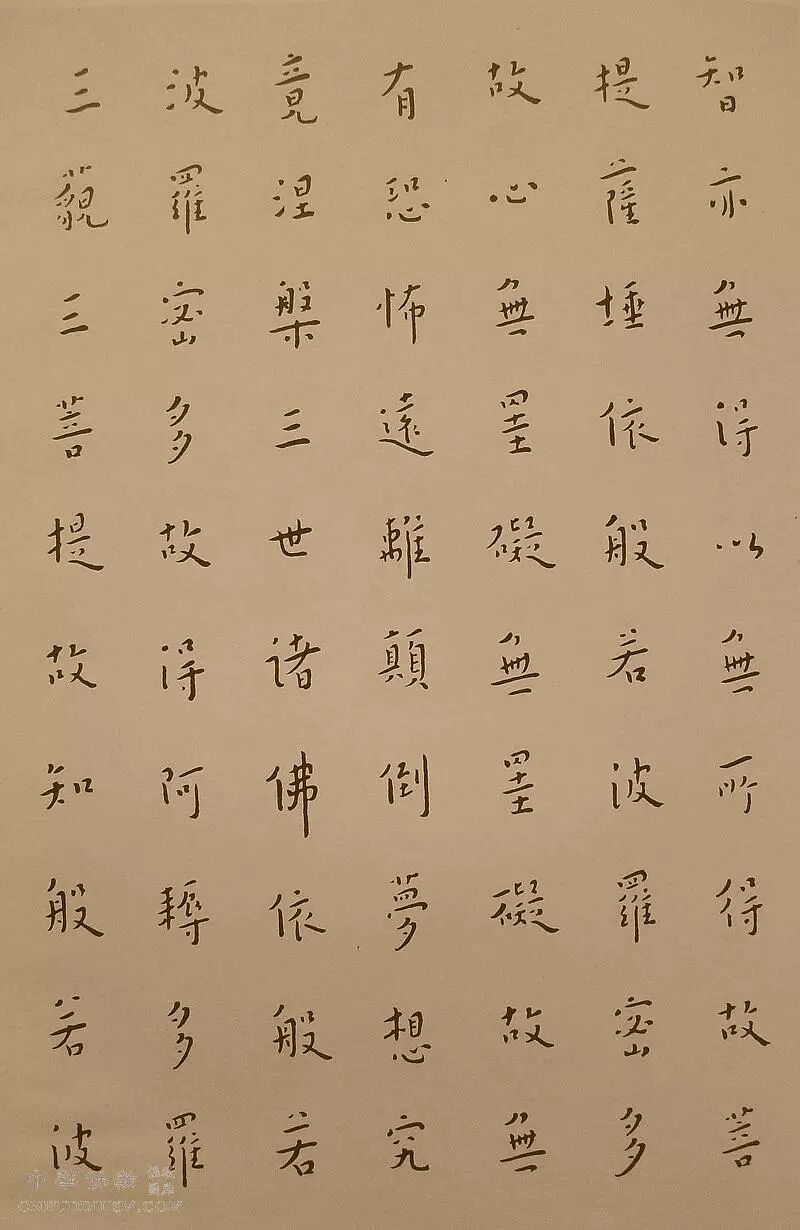 智亦無得以無所得故菩
提薩埵依般若波羅密多
故心無罣礙無罣礙故無
有恐怖遠離顛倒夢想究
竟涅槃三世諸佛依般若
波羅密多故得阿耨多羅
三藐三菩提故知般若波
中華佛教